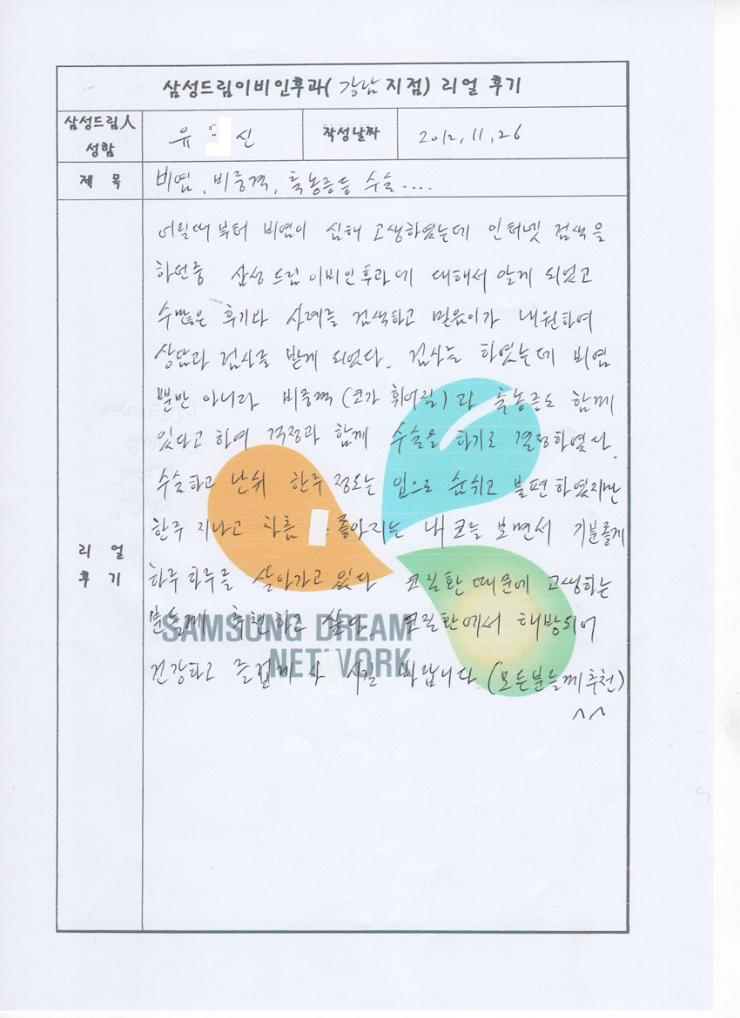 삼성드림이비인후과(강남 지점) 리얼 후기
삼성드림人 성함
유 신
작성날짜
2012, 11, 26
제 목
비염, 비중격, 축농증등 수술....
리 얼 후 기
어릴때부터 비염이 심해 고생하였는데 인터넷 검색을
하던중 삼성 드림 이비인후과에 대해서 알게 되었고
수많은 후기와 사례를 검색하고 믿음이가 내원하여
상담과 검사를 받게 되었다. 검사를 하였는데 비염
뿐만 아니라 비중격(코가 휘어짐)과 축농증도 함께
있다고 하여 걱정과 함께 수술을 하기로 결정하였다.
수술하고 난뒤 한주 정도는 입으로 숨쉬고 불편하였지만
한주 지나고 차츰 좋아지는 내 코를 보면서 기분좋게
하루 하루를 살아가고 있다 코질환 때문에 고생하는
분들께 추천하고 싶다. 코질환에서 해방되어
건강하고 즐겁게 사시길 바랍니다.(모든분들께 추천)
^^
SAMSUNG DREAM
NETWORK